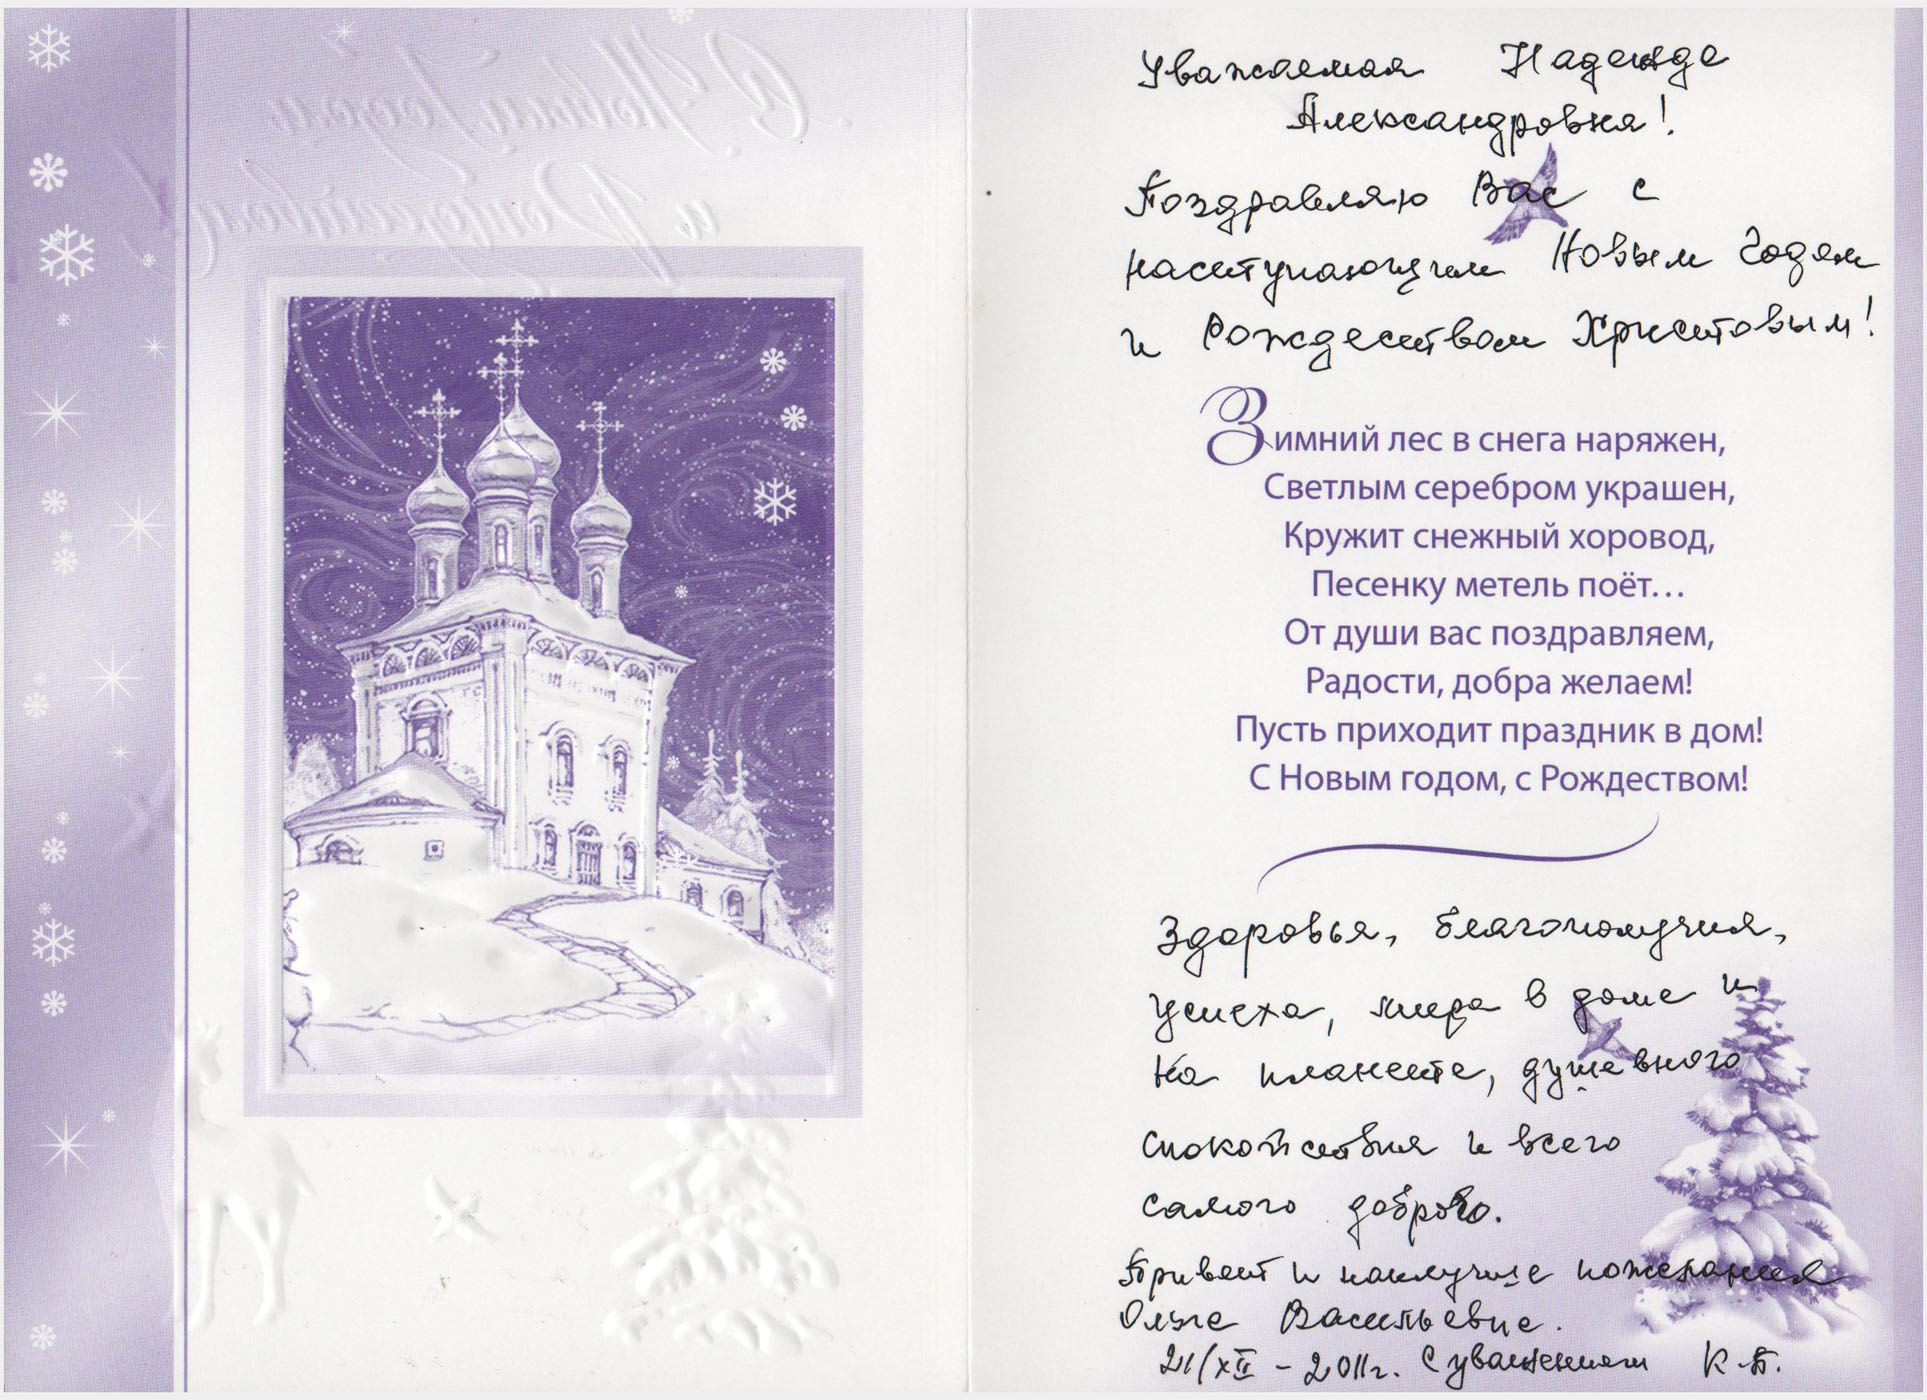 С Новым Годом
и Рождеством!
Уважаемая Надежда
Александровна!
Поздравляю Вас с
наступающим Новым Годом
и Рождеством Христовым!
Зимний лес в снега наряжен,
Светлым серебром украшен,
Кружит снежный хоровод,
Песенку метель поёт…
От души вас поздравляем,
Радости, добра желаем!
Пусть приходит праздник в дом!
С Новым годом, с Рождеством!
Здоровья, благополучия,
успеха, мира в доме и
на планете, душевного
спокойствия и всего
самого доброго.
Привет и наилучшие пожелания
Ольге Васильевне.
21/XII – 2011г. С уважением К.П.